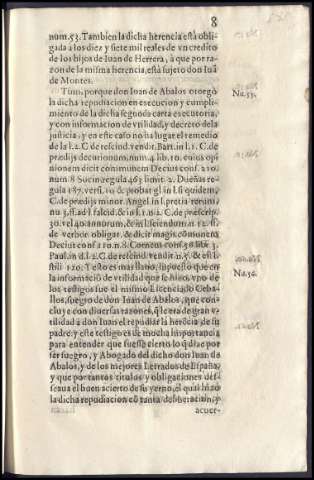 8
num. 53. Tambien la dicha herencia està obli-
gada a los diez y siete mil reales de vn credito
de los hijos de Iuan de Herrera, à que por ra-
zon de la misma herencia, està sujeto don Iuã
de Montes.
Tum, porque don Iuan de Abalos otorgò
la dicha repudiacion en execucion y cumpli-
miento de la dicha segunda carta executoria,
y con informacion de vtilidad, y decreto de la
justicia, y en este caso no ha lugar el remedio
de la l. 2. C. de rescind. vendit. Bart. in l. 1. C. de
prædijs decurionum, num. 4. lib. 10. cuius opi-
nionem dicit communem Decius conf. 210.
num 8 Socin. regula 463. limit. 2. Dueñas re-
gula 187. versi. 10. & probat gl. in l. si quidem,
C. de præd.js minor. Angel. in l. pretia rerum,
nu 3. ff. ad l. falcid. & in l. 1. n. 2. C. de præscrip.
30. vel 40. annorum, & in l. sciendum. n. 12. ff.
de verbor. obligat. & dicit magis cõmunem
Decius conf. 210. n. 8. Corneus conf. 30. lib. 3.
Paul. in d. l. 2. C. de rescind. vendit. n. 5. &
120. Y esto es mas llano, supuesto que en
la informacion de vtilidad que se hizo, vno de
los testigos fue el mismo Licenciado Ceba-
llos, suegro de don Iuan de Abalos, que con-
cluye con diuersas razones, q̃ le era de gran v-
tilidad a don Iuan el repudiar la herẽcia de su
padre, y este testigo es de mucha importancia
para entender que fuesse cierto lo q̃ dize por
ser suegro, y Abogado del dicho don Iuan de
Abalos, y de los mejores Letrados de España,
y que por tantos titulos y obligaciones des-
seaua el buen acierto de su yerno, el qual hizo
la dicha repudiacion cõ tanta deliberacion, y
acuer-
Nu. 55.
Nu. 56.